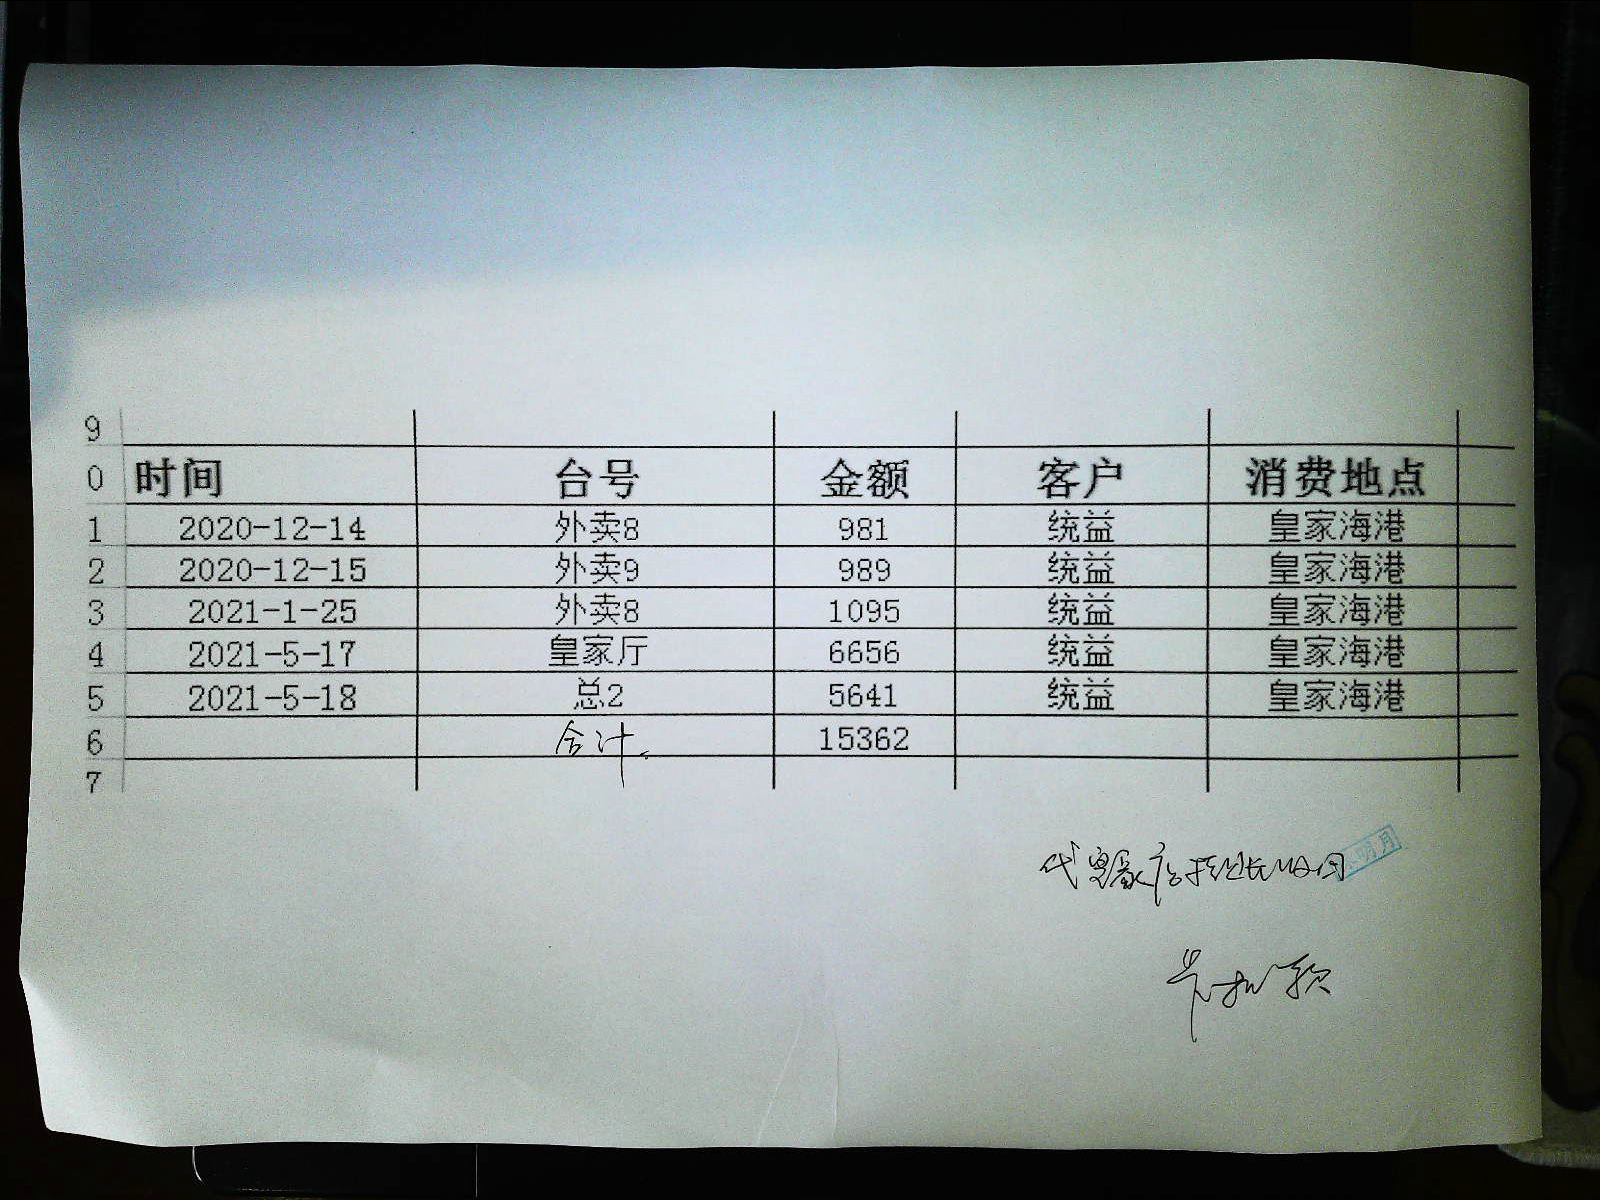 9
0 时间 台号 金额 客户 消费地点
1 2020-12-14 外卖8 981 统益 皇家海港
2 2020-12-15 外卖9 989 统益 皇家海港
3 2021-1-25 外卖8 1095 统益 皇家海港
4 2021-5-17 皇家厅 6656 统益 皇家海港
5 2021-5-18 总2 5641 统益 皇家海港
6 合计. 15362
7
代皇家
明月